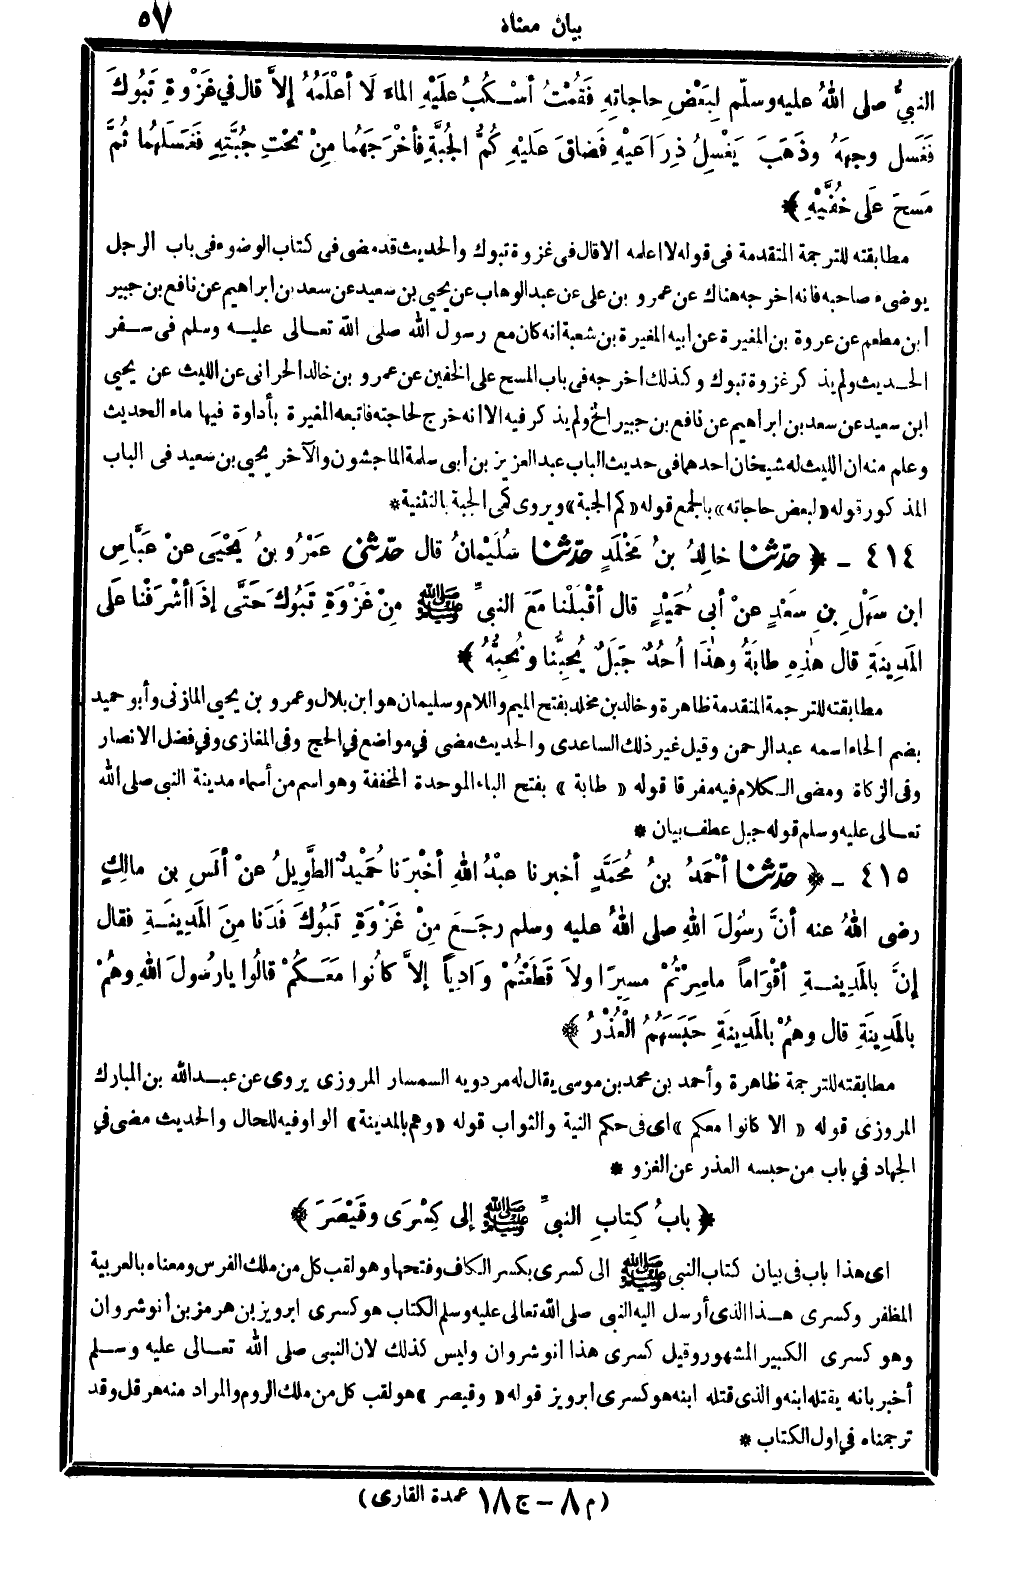 بيان معناه ٥٧
النبيُّ صلى اللهُ عليه وسلّم لِبَعْضِ حاجاتِهِ فَقُمْتُ أسْكُبُ عَلَيْهِ الماءَ لَا أعْلَمُهُ إلاَّ قال في غَزْوةِ تَبُوكَ
فَغَسل وجهَهُ وذَهَبَ يَغْسِلُ ذِرَاعَيْهِ فَضاقَ عَلَيْهِ كُمُّ الجُبَّةِ فأخْرَجَهُما مِنْ تحْتِ جُبَّتِهِ فَغَسَلَهُما ثُمَّ
مَسحَ عَلَى خُفَّيْهِ ﴾
مطابقته للترجمة المتقدمة فى قوله لا اعلمه الا قال فى غزوة تبوك والحديث قد مضى فى كتاب الوضوء فى باب الرجل
يوضىء صاحبه فانه اخرجه هناك عن عمرو بن على عن عبد الوهاب عن يحيى بن سعيد عن سعد بن ابراهيم عن نافع بن جبير
ابن مطعم عن عروة بن المغيرة عن ابيه المغيرة بن شعبة انه كان مع رسول الله صلى الله تعالى عليه وسلم فى سفر
الحديث ولم يذكر غزوة تبوك وكذلك اخرجه فى باب المسح على الخفين عن عمرو بن خالد الحرانى عن الليث عن يحيى
ابن سعيد عن سعد بن ابراهيم عن نافع بن جبير الخ ولم يذكر فيه الا انه خرج لحاجته فاتبعه المغيرة بأداوة فيها ماء الحديث
وعلم منه ان الليث له شيخان احدهما فى حديث الباب عبد العزيز بن أبى سلمة الماجشون والآخر يحيى بن سعيد فى الباب
المذكور قوله «لبعض حاجاته» بالجمع قوله «كم الجبة» ويروى كمى الجبة بالتثنية *
٤١٤ - ﴿ حدّثنا خالِدُ بنُ مَخْلَدٍ حدّثنا سُلَيْمانُ قال حدّثنى عَمْرُو بنُ يَحْيَى عنْ عَبَّاسِ
ابن سَهْلِ بنِ سَعْدٍ عنْ أبى حُمَيْدٍ قال أقْبَلْنا مَعَ النبىِّ ﷺ مِنْ غَزْوَةِ تَبُوكَ حَتَّى إذَا أشْرَفْنا عَلَى
المَدِينَةِ قال هٰذِهِ طابَةُ وهٰذَا أُحُدٌ جَبَلٌ يُحِبُّنا ونُحِبُّهُ ﴾
مطابقته للترجمة المتقدمة ظاهرة وخالد بن مخلد بفتح الميم واللام وسليمان هو ابن بلال وعمرو بن يحيى المازنى وأبو حميد
بضم الحاء اسمه عبد الرحمن وقيل غير ذلك الساعدى والحديث مضى في مواضع في الحج وفى المغازى وفي فضل الانصار
وفى الزكاة ومضى الكلام فيه مفرقا قوله « طابة » بفتح الباء الموحدة المخففة وهو اسم من أسماء مدينة النبى صلى الله
تعالى عليه وسلم قوله جبل عطف بيان *
٤١٥ - ﴿ حدّثنا أحْمَدُ بنُ مُحَمَّدٍ أخبرنا عبْدُ اللهِ أخْبَرَنا حُمَيْدٌ الطَّوِيلُ عنْ أنَسِ بن مالِكٍ
رضى اللهُ عنه أنَّ رسُولَ اللهِ صلى اللهُ عليه وسلم رجَعَ مِنْ غَزْوَةِ تَبُوكَ فَدَنا مِنَ المَدِينَةِ فقال
إنَّ بالمَدِينَةِ أقْوَاماً ماسِرْتُمْ مسِيرًا ولاَ قَطَعْتُمْ وَادِياً إلاَّ كانُوا مَعَكُمْ قالُوا يارسُولَ اللهِ وهُمْ
بالمَدِينَةِ قال وهُمْ بالمَدِينَةِ حَبَسَهُمُ الْعُذْرُ ﴾
مطابقته للترجمة ظاهرة وأحمد بن محمد بن موسى يقال له مردويه السمسار المروزى يروى عن عبد الله بن المبارك
المروزى قوله « الا كانوا معكم » اى فى حكم النية والثواب قوله «وهم بالمدينة» الواو فيه للحال والحديث مضى في
الجهاد في باب من حبسه العذر عن الغزو *
﴿ بابُ كِتابِ النبىِّ ﷺ إلى كِسْرَى وقَيْصَرَ ﴾
اى هذا باب فى بيان كتاب النبى ﷺ الى كسرى بكسر الكاف وفتحها وهو لقب كل من ملك الفرس ومعناه بالعربية
المظفر وكسرى هذا الذى أرسل اليه النبى صلى الله تعالى عليه وسلم الكتاب هو كسرى ابرويز بن هرمز بن أنوشروان
وهو كسرى الكبير المشهور وقيل كسرى هذا انوشروان وليس كذلك لان النبى صلى الله تعالى عليه وسلم
أخبر بانه يقتله ابنه والذى قتله ابنه هو كسرى ابرويز قوله « وقيصر » هو لقب كل من ملك الروم والمراد منه هرقل وقد
ترجمناه في اول الكتاب *
(م ٨ – ج ١٨ عمدة القارى)